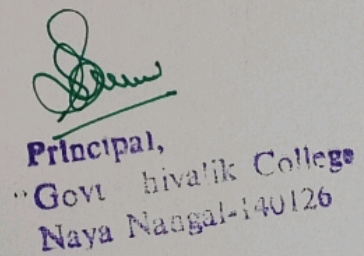 Principal,
Govt hivalik College
Naya Nangal-140126